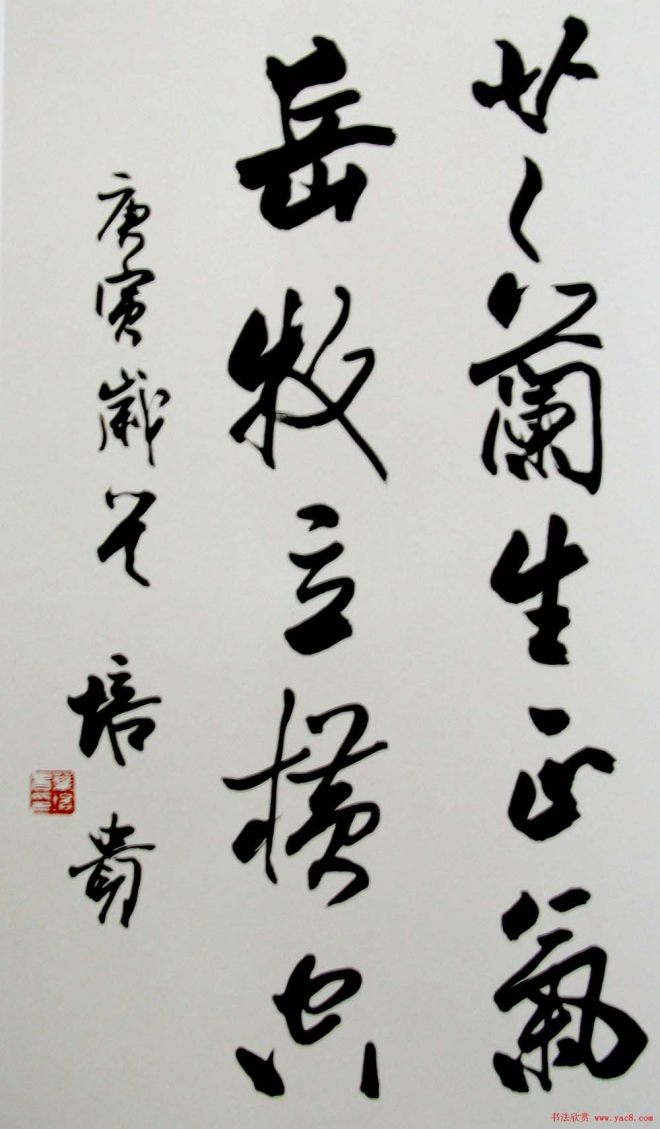 芝蘭生正氣
岳牧立横空
庚寅歲 培貴
书法欣赏 www.yac8.com